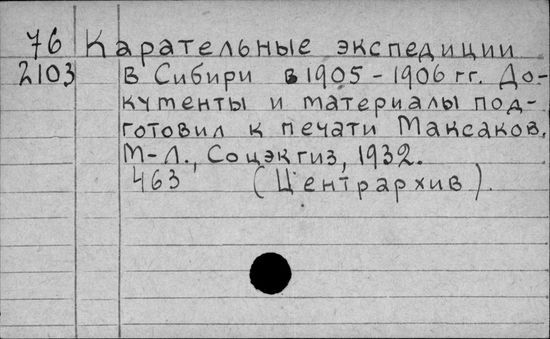 76 Карательные экспедиции
2103 в Сибири в 1905-1906 гг. До-
кументы и материалы под-
готовил к печати Максаков.
М-Л., Соцэкгиз, 1932.
463 (Центрархив).